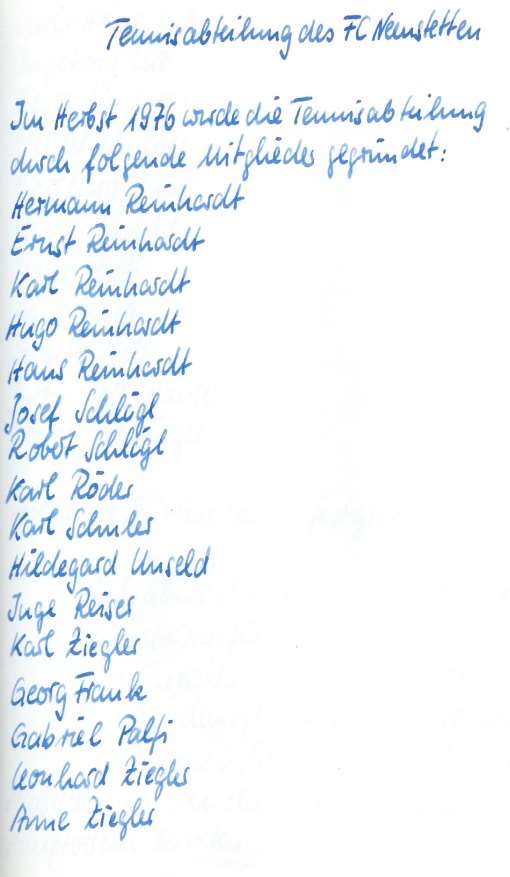 Tennisabteilung des FC Nenstetten
Im Herbst 1976 wurde die Tennisabteilung
durch folgende Mitglieder gegründet:
Hermann Reinhardt
Ernst Reinhardt
Karl Reinhardt
Hugo Reinhardt
Hans Reinhardt
Josef Schlögl
Robert Schlögl
Karl Röder
Karl Schuler
Hildegard Unseld
Inge Reiser
Karl Ziegler
Georg Frank
Gabriel Palfi
Leonhard Ziegler
Anne Ziegler